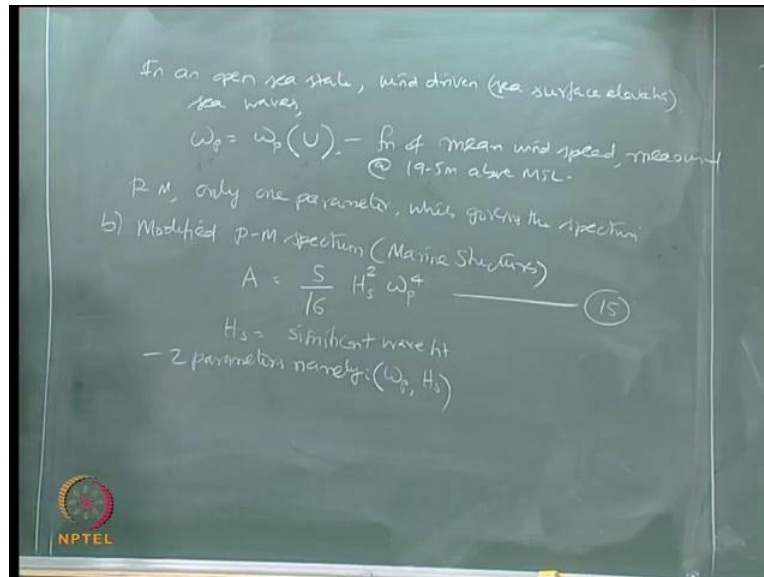 In an open sea state, wind driven (sea surface elevatn)
sea waves,
ωp = ωp(U). – fn of mean wind speed, measured
@ 19.5m above MSL.
P M, only one parameter, which governs the spectrum
b) Modified P-M spectrum (Marine Structures)
A = 5/16 Hs² ωp⁴ ——— (15)
Hs = significant wave ht
– 2 parameters namely: (ωp, Hs)
NPTEL